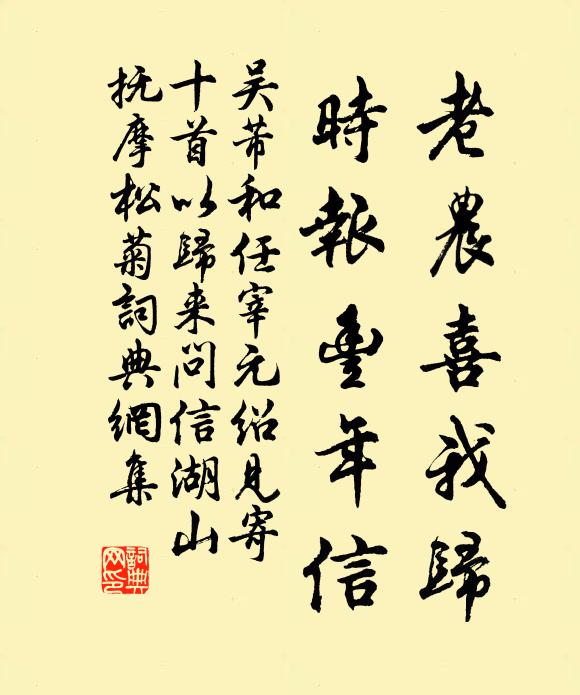 老農喜我歸
時報豐年信
吴芾和任宰元绍見寄
十首以歸来問信湖山
抚摩松菊詞典網集
詞典
网印